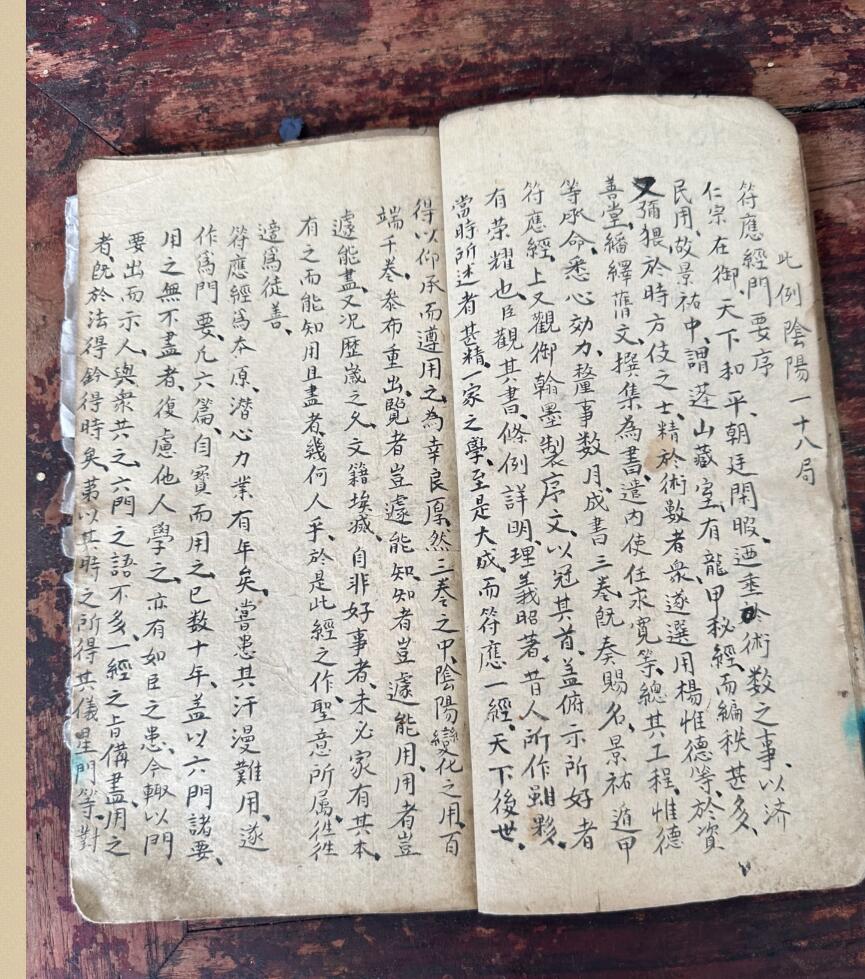 此例陰陽一十八局
符應經門要序
仁宗在御、天下和平、朝廷閑暇、迺垂於術数之事、以济
民用、故景祐中、謂蓬山藏室、有龍甲秘經、而編秩甚多、
又彌猥於時方伎之士、精於術數者衆、遂選用楊惟德等、於資
善堂繙繹舊文、撰集為書、遣内使任求寬等、總其工程、惟德
等承命、悉心効力、釐事数月、成書三卷、既奏賜名、景祐遁甲
符應經、上又觀御翰墨製序文、以冠其首、盖俯示所好者
有荣耀也、臣觀其書、條例詳明、理義昭著、昔人所作雖夥、
當時所述者甚精、家之學、至是大成、而符應一經、天下後世、
得以仰承而遵用之、為幸良厚、然三卷之中、陰陽變化之用、百
端千卷、叅布重出、覽者豈遽能知、知者豈遽能用、用者豈
遽能盡、又况歷歲之久、文籍埃滅、自非好事者、未必家有其本、
有之而能知用且盡者、幾何人乎、於是此經之作、聖意所属、徃徃
適爲徒善、
符應經爲本原、潜心力業有年矣、嘗患其汗漫難用、遂
作爲門要、凡六篇、自寳而用之、已数十年、盖以六門諸要、
用之無不盡者、復慮他人學之、亦有如臣之患、今輙以門
要出而示人、與衆共之、六門之語不多、一經之旨備盡、用之
者、既於法得鈐得時矣、苐以其時之所得其儀星門等、對